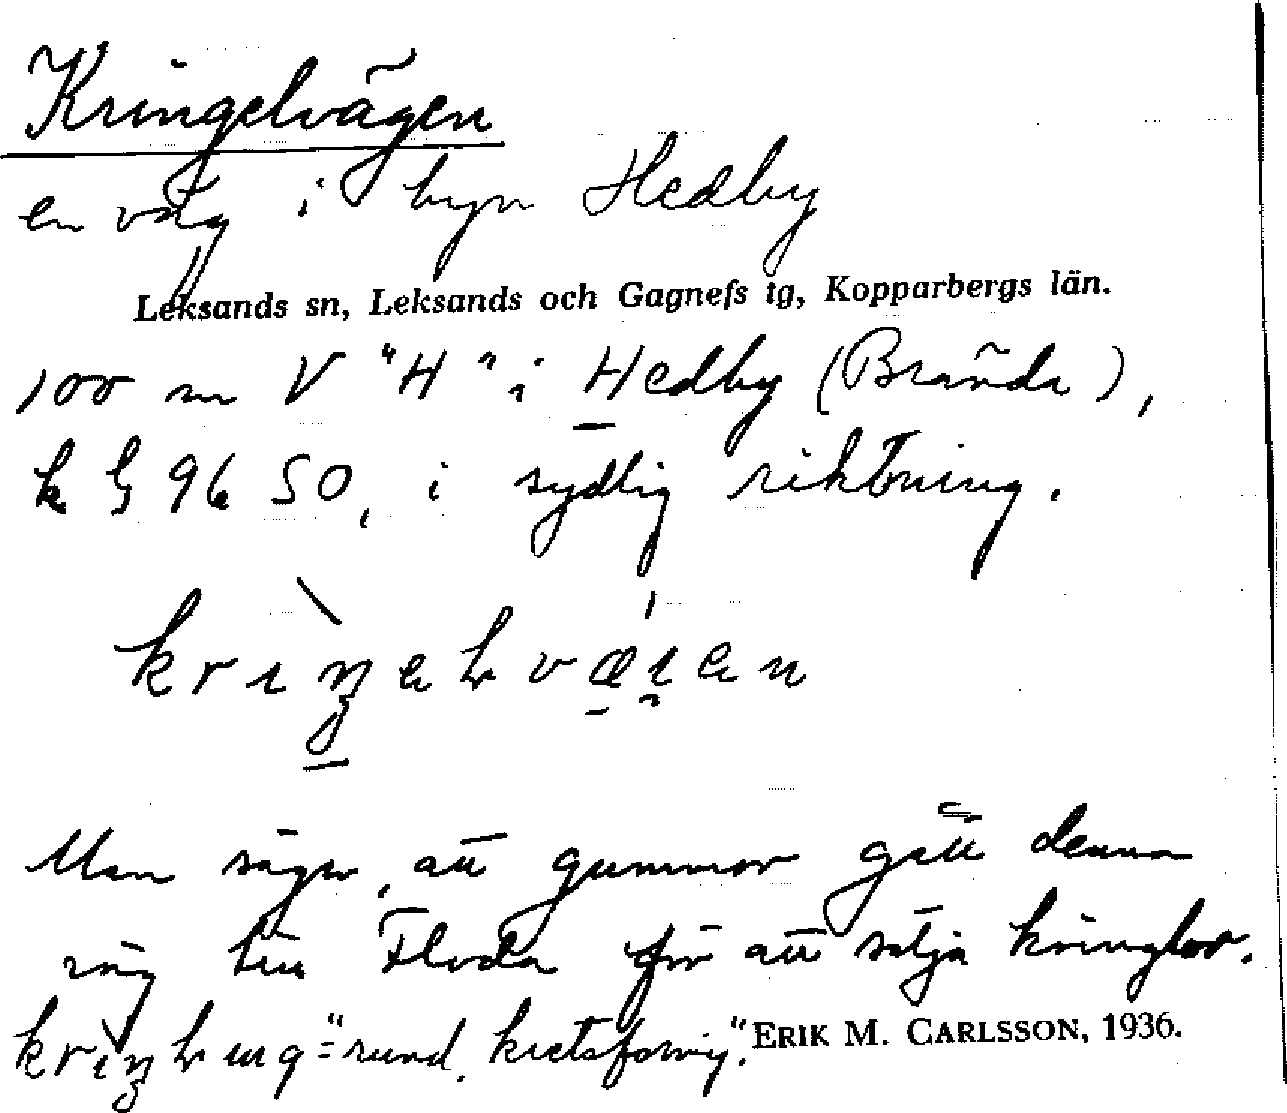 Kringelvägen
en väg i byn Hedby
Leksands sn, Leksands och Gagnefs tg, Kopparbergs län.
100 m V "H" i Hedby (Brända),
9650, i sydlig riktning.
Man säger, att gummor gått denna
väg till Floda för att sälja kringlor.
="rund, kretsformig".
ERIK M. CARLSSON, 1936.